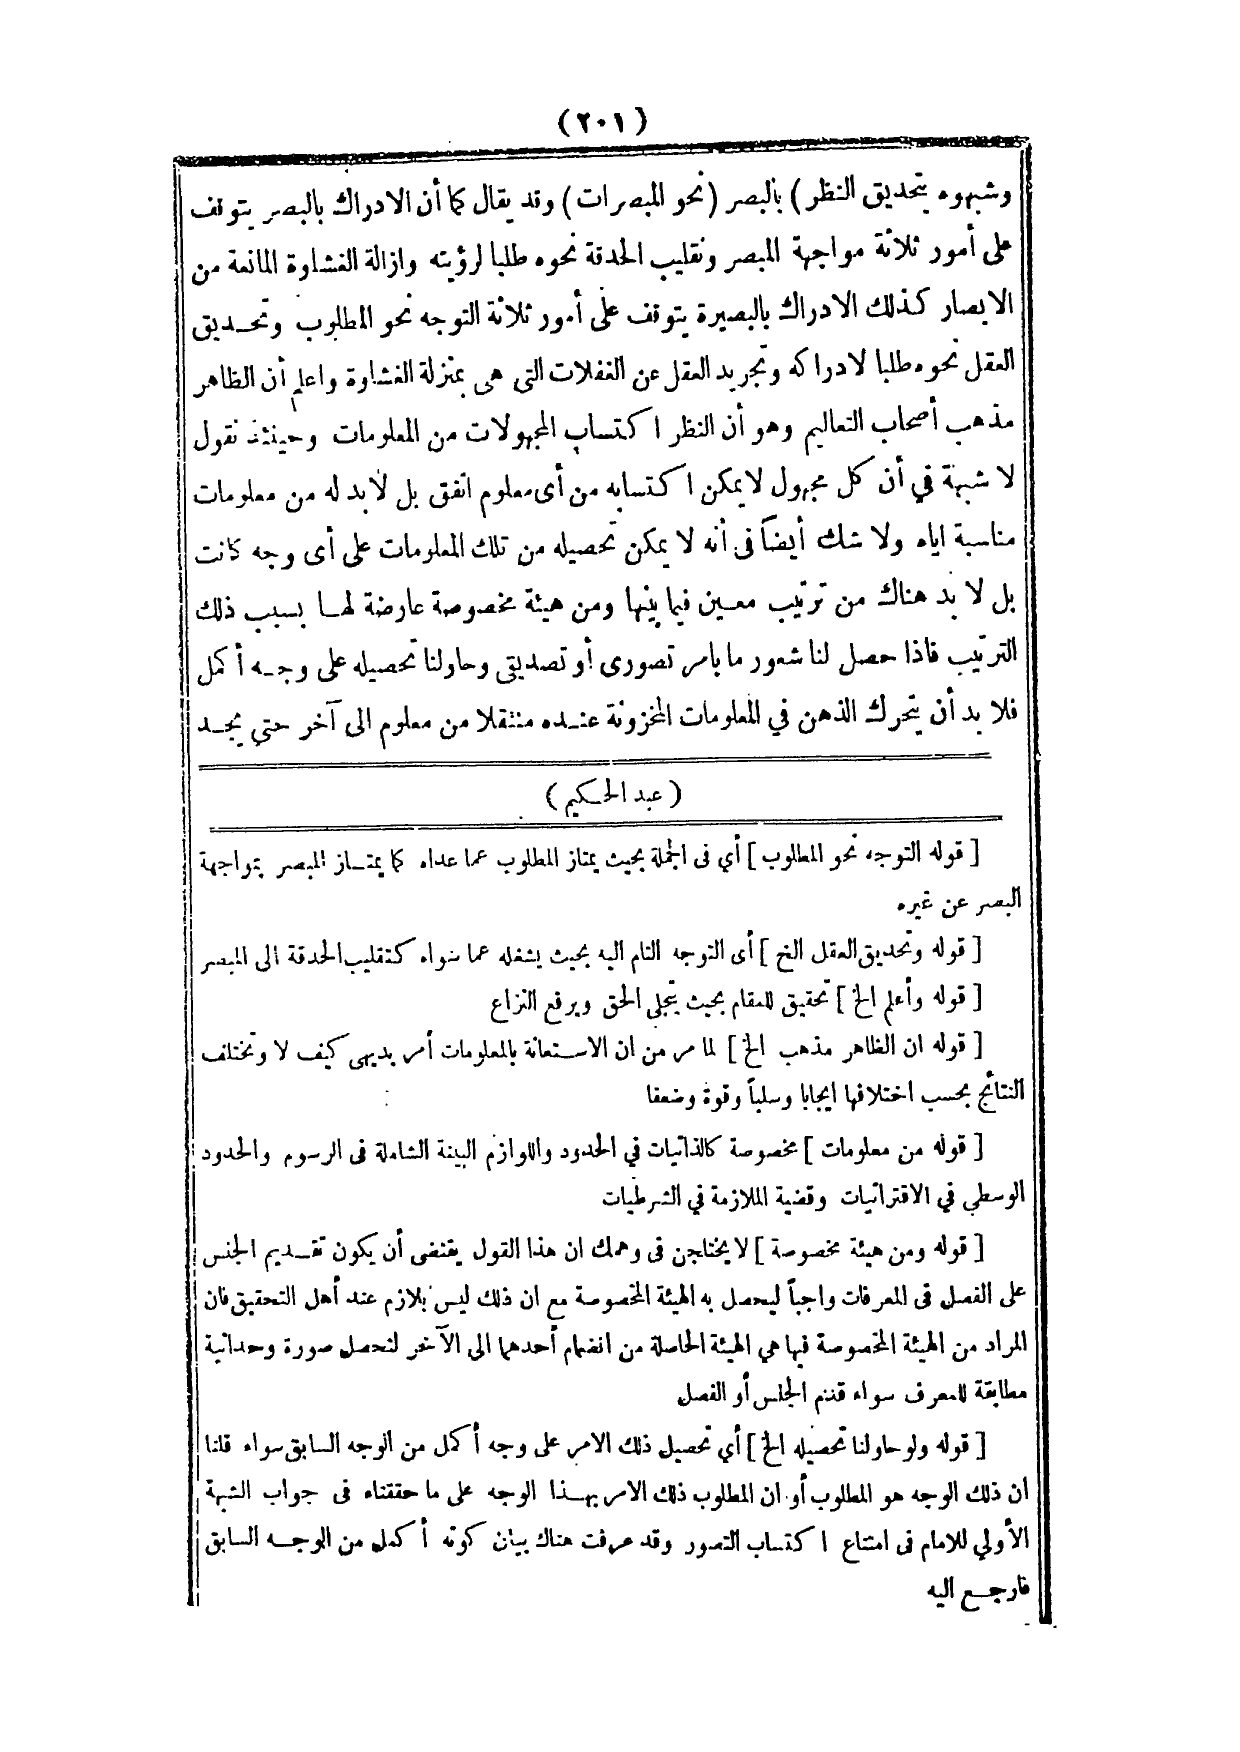 (٢٠١)
وشبهوه بتحديق النظر) بالبصر (نحو المبصرات) وقد يقال كما أن الادراك بالبصر يتوقف
على أمور ثلاثة مواجهة المبصر وتقليب الحدقة نحوه طلبا لرؤيته وازالة الغشاوة المانعة من
الابصار كذلك الادراك بالبصيرة يتوقف على أمور ثلاثة التوجه نحو المطلوب وتحديق
العقل نحوه طلبا لادراكه وتجريد العقل عن الغفلات التى هى بمنزلة الغشاوة واعلم أن الظاهر
مذهب أصحاب التعاليم وهو أن النظر اكتساب المجهولات من المعلومات وحينئذ نقول
لا شبهة في أن كل مجهول لا يمكن اكتسابه من أى معلوم اتفق بل لا بد له من معلومات
مناسبة اياه ولا شك أيضاً فى أنه لا يمكن تحصيله من تلك المعلومات على أى وجه كانت
بل لا بد هناك من ترتيب معين فيما بينها ومن هيئة مخصوصة عارضة لها بسبب ذلك
الترتيب فاذا حصل لنا شعور ما بامر تصورى أو تصديقى وحاولنا تحصيله على وجه أكمل
فلا بد أن يتحرك الذهن في المعلومات المخزونة عنده منتقلا من معلوم الى آخر حتى يجد
(عبد الحكيم)
[ قوله التوجه نحو المطلوب ] أي فى الجملة بحيث يمتاز المطلوب عما عداه كما يمتاز المبصر بمواجهة
البصر عن غيره
[ قوله وتحديق العقل الخ ] أى التوجه التام اليه بحيث يشغله عما سواه كتقليب الحدقة الى المبصر
[ قوله وأعلم الخ ] تحقيق للمقام بحيث يتجلى الحق ويرفع النزاع
[ قوله ان الظاهر مذهب الخ ] لما مر من ان الاستعانة بالمعلومات أمر بديهى كيف لا وتختلف
النتائج بحسب اختلافها ايجابا وسلباً وقوة وضعفا
[ قوله من معلومات ] مخصوصة كالذاتيات في الحدود واللوازم البينة الشاملة فى الرسوم والحدود
الوسطي في الاقترانيات وقضية الملازمة في الشرطيات
[ قوله ومن هيئة مخصوصة ] لا يختلجن فى وهمك ان هذا القول يقتضى أن يكون تقديم الجنس
على الفصل فى المعرفات واجباً ليحصل به الهيئة المخصوصة مع ان ذلك ليس بلازم عند أهل التحقيق فان
المراد من الهيئة المخصوصة فيها هي الهيئة الحاصلة من انضمام أحدهما الى الآخر لتحصل صورة وحدانية
مطابقة للمعرف سواء قدم الجنس أو الفصل
[ قوله ولو حاولنا تحصيله الخ ] أي تحصيل ذلك الامر على وجه أكمل من الوجه السابق سواء قلنا
أن ذلك الوجه هو المطلوب أو ان المطلوب ذلك الامر بهذا الوجه على ما حققناه فى جواب الشبهة
الأولي للامام فى امتناع اكتساب التصور وقد عرفت هناك بيان كونه أكمل من الوجه السابق
فارجع اليه